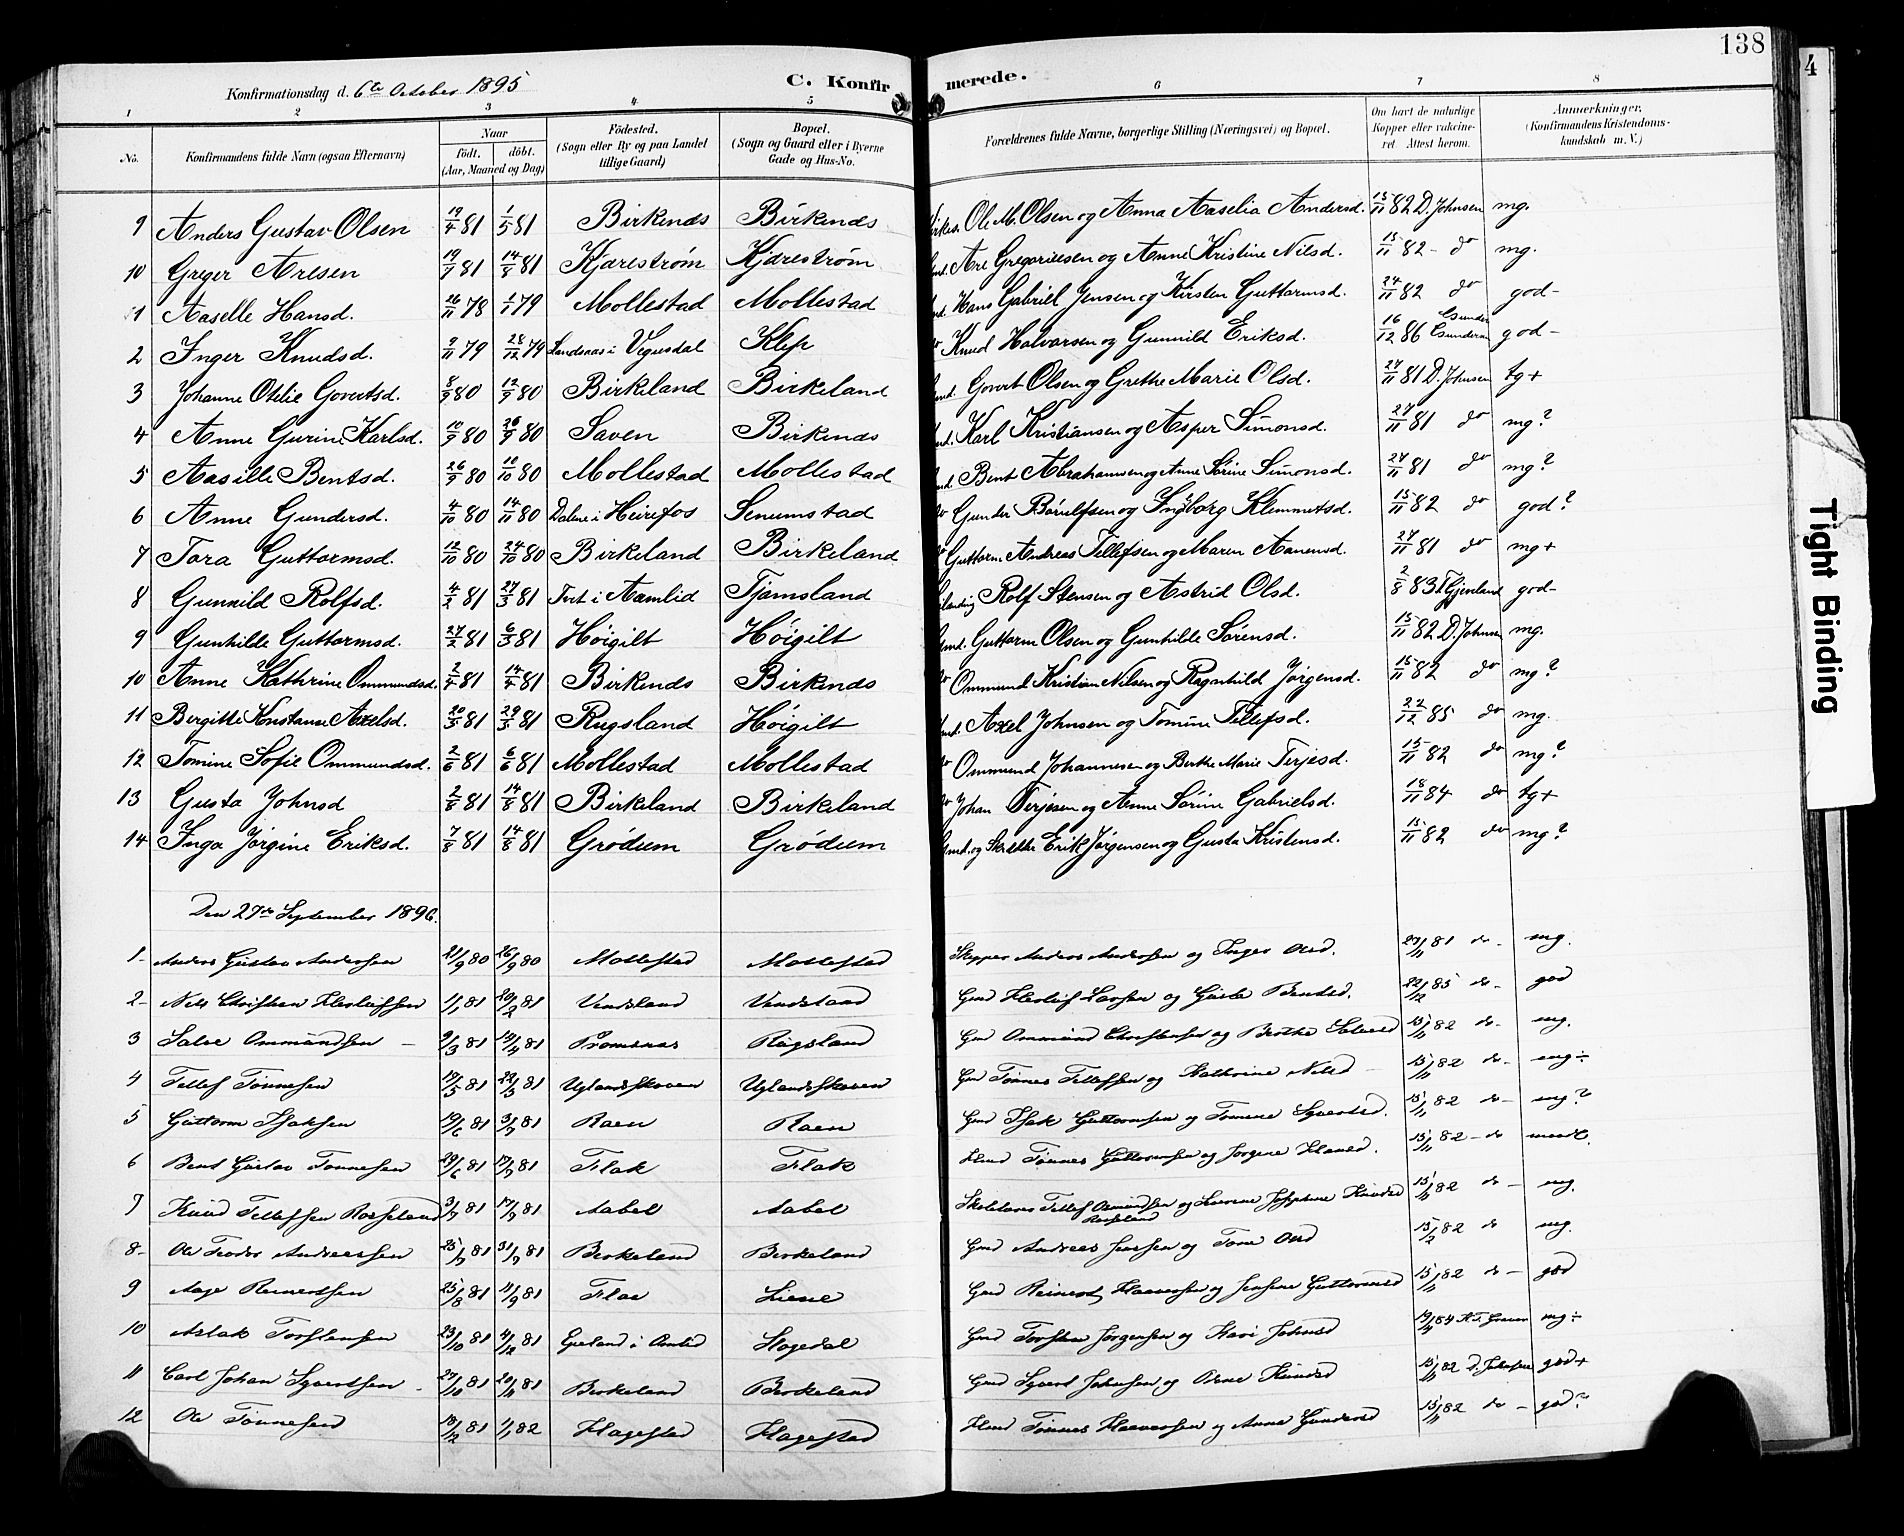 138
4
Konfirmationsdag d. 6te October 1895
C. Konfirmerede.
1 2 3 4 5 6 7 8
No. Konfirmandens fulde Navn (ogsaa Efternavn) Naar födt. döbt. (Aar, Maaned og Dag) Födested. (Sogn eller By og paa Landet tillige Gaard) Bopæl. (Sogn og Gaard eller i Byerne Gade og Hus-No. Forældrenes fulde Navne, borgerlige Stilling (Næringsvei) og Bopæl. Om havt de naturlige Kopper eller vakcineret. Attest herom. Anmærkninger. (Konfirmandens Kristendomskundskab m. V.)
9 Anders Gustav Olsen 19/4 81 1/5 81 Birkenæs Birkenæs Ole M. Olsen og Anna Aaselia Andersd. 15/11 82 D. Johnsen mg.
10 Greger Aresen 19/7 81 14/8 81 Kjærestrøm Kjærestrøm Are Gregoriusen og Anne Kristine Nilsd. 15/11 82 - do mg.
1 Aaselle Hansd. 26/11 78 1/1 79 Mollestad Mollestad Hans Gabriel Jensen og Kirsten Guttormsd. 24/11 82 do god-
2 Inger Knudsd. 9/11 79 28/12 79 Landsnæs i Vegusdal Klep Knud Halvorsen og Gunnild Eriksd. 16/12 86 god-
3 Johanne Otelie Govertsd. 8/9 80 12/9 80 Birkeland Birkeland Govert Olsen og Grethe Marie Olsd. 27/11 81 D. Johnsen tg+
4 Anne Gurine Karlsd. 10/9 80 26/9 80 Saven Birkenæs Karl Kristiansen og Asper Simonsd. 27/11 81 do mg?
5 Aasille Bentsd. 26/9 80 10/10 80 Mollestad Mollestad Bent Abrahamsen og Anne Sørine Simonsd. 27/11 81 do mg?
6 Anne Gundersd. 4/10 80 14/11 80 Dalene i Heirefos Senumstad Gunder Børulfsen og Ingborg Klemmetsd. 15/11 82 do god?
7 Tora Guttormsd. 12/10 80 24/10 80 Birkeland Birkeland Guttorm Andreas Tellefsen og Maren Aanensd. 27/11 81 do mg+
8 Gunnild Rolfsd. 4/2 81 27/3 81 Tvet i Aamlid Tjamsland Rolf Stensen og Astrid Olsd. 2/8 83 god-
9 Gunhilde Guttormsd. 27/2 81 6/3 81 Høigilt Høigilt Guttorm Olsen og Gunhilde Sørensd. 15/11 82 D. Johnsen mg.
10 Anne Kathrine Ommundsd. 2/4 81 14/4 81 Birkenæs Birkenæs Ommund Kristian Nilsen og Ragnhild Jørgensd. 15/11 82 do mg?
11 Bergitte Konstanse Axelsd. 20/3 81 29/5 81 Rugsland Høigilt Axel Johnsen og Tomine Tellefsd. 22/12 85 do mg.
12 Tomine Sofie Ommundsd. 2/6 81 6/6 81 Mollestad Mollestad Ommund Johannesen og Berthe Marie Terjesd. 15/11 82 do mg?
13 Gusta Johnsd 2/8 81 14/8 81 Birkeland Birkeland Johan Terjesen og Anne Sørine Gabrielsd. 18/11 84 do tg+
14 Inga Jørgine Eriksd. 7/8 81 14/8 81 Grødum Grødum Gmd. og Skrædder Erik Jørgensen og Gusta Kristensd. 15/11 82 do mg?
Den 27de September 1896.
1- Anders Gustav Andersen 21/9 80 26/9 80 Mollestad Mollestad Skipper Anders Andersen og Inger Olsd. 27/11 81 do - mg.
2- Nils Christian Herlufsen 1/1 81 20/2 81 Vendsland Vendsland Gmd Herluf Larsen og Gusta Bentsd. 22/12 85 do - god
3 Salve Ommundsen 2/3 81 14/4 81 Rugsland Gmd Ommund Christensen og Berthe Salvesd 15/11 82 do - mg.
4 Tellef Tønnesen 17/5 81 22/5 81 Uglandsskoven Uglandsskoven Gmd Tønnes Tellefsen og Kathrine Nilsd 15/11 82 do - mg÷
5 Guttorm Isaksen 19/6 81 3/7 81 Raen Raen Gmd Isak Guttormsen og Tomine Syvertsd. 15/11 82 do - mg?
6 Bent Gustav Tønnesen 29/6 81 17/7 81 Flak Flak Hmd Tønnes Guttormsen og Jørgine Hansd. 15/11 82 - do maadl.
7 Knud Tellefsen Rosseland 3/7 81 17/7 81 Aabel Aabel Skolelærer Tellef Osmundsen Rosseland og Lovise Josephine Knudsd 15/11 82 do - mg.
8- Ole Teodor Andreassen 25/7 81 31/7 81 Birkeland Birkeland Gmd Andreas Jensen og Tone Olsd 15/2 82 do mg.
9 Aage Reinertsen 25/8 81 11/9 81 Flaa Liene Gmd Reinert Haaversen og Jensine Guttormsd 15/11 82 do - god
10 Aslak Torstensen 23/10 81 4/12 81 Gjerland i Åmlid Hagedal Gmd Torsten Jørgensen og Kari Johnsd 19/4 84 mg÷
11 Carl Johan Syvertsen - 27/10 81 20/11 81 Birkeland Birkeland Gmd Syvert Johnsen og Anne Knudsd 15/11 82 D. Johnsen god+
12 Ole Tønnesen 18/12 81 1/1 82 Hagestad Hagestad Hmd Tønnes Haaversen og Anne Gundersd 15/11 82 do - god?
Tight Binding